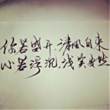 你若盛开,清风自来
心若浮沉,浅笑安然